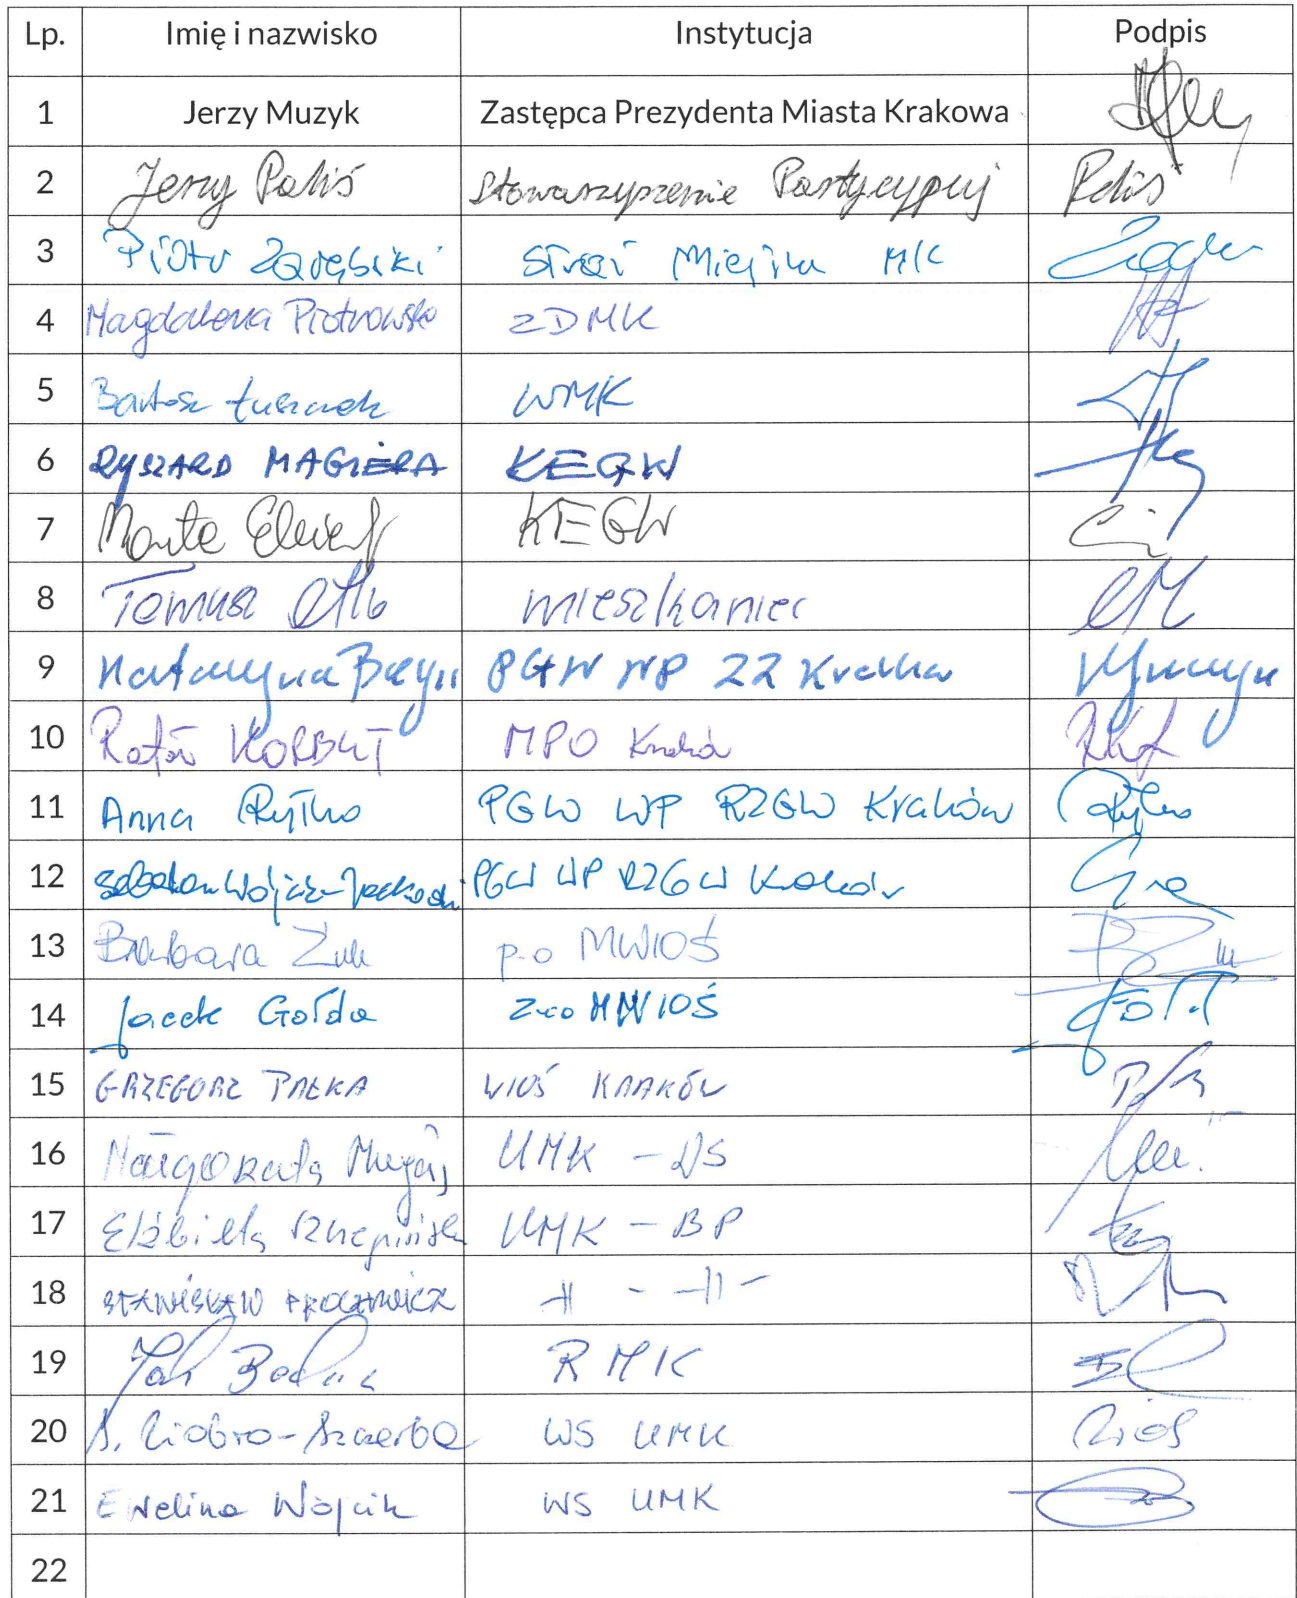 Lp. Imię i nazwisko Instytucja Podpis
1 Jerzy Muzyk Zastępca Prezydenta Miasta Krakowa
2 Jerzy Paliś Stowarzyszenie Partycypuj Paliś
3 Piotr Zarębski Straż Miejska MK
4 Magdalena Piotrowska ZDMK
5 Bartosz Łuszczek WMK
6 RYSZARD MAGIERA KEGW
7 Marta KEGW
8 Tomasz mieszkaniec
9 Katarzyna PGW WP ZZ Kraków
10 Rafał KORBUT MPO Kraków
11 Anna Rytko PGW WP RZGW Kraków
12 PGW WP RZGW Kraków
13 Barbara Żuk p.o MWIOŚ
14 Jacek Gołda Z-co MWIOŚ
15 GRZEGORZ PAŁKA WIOŚ KRAKÓW
16 Małgorzata UMK - WS
17 Elżbieta UMK - BP
18 STANISŁAW -||- -||-
19 RMK
20 A. Ziobro-Szczerba WS UMK
21 Ewelina Wójcik WS UMK
22